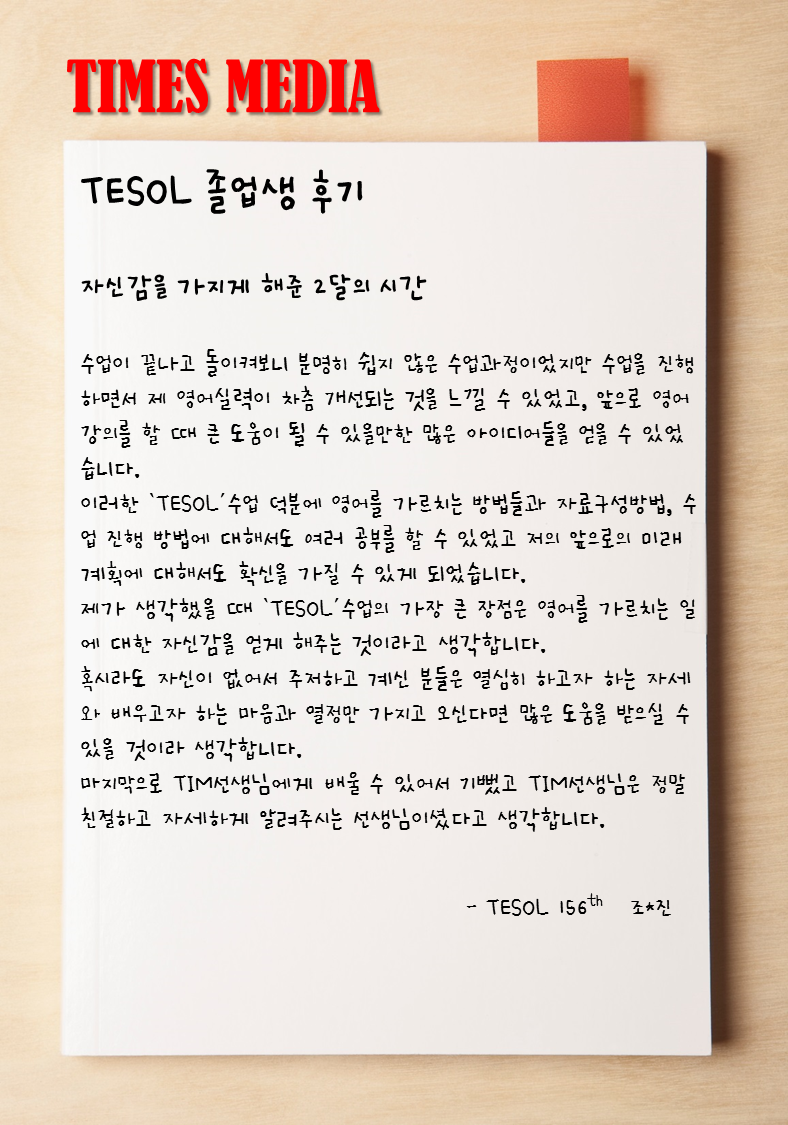 TIMES MEDIA
TESOL 졸업생 후기
자신감을 가지게 해준 2달의 시간
수업이 끝나고 돌이켜보니 분명히 쉽지 않은 수업과정이었지만 수업을 진행
하면서 제 영어실력이 차츰 개선되는 것을 느낄 수 있었고, 앞으로 영어
강의를 할 때 큰 도움이 될 수 있을만한 많은 아이디어들을 얻을 수 있었
습니다.
이러한 'TESOL'수업 덕분에 영어를 가르치는 방법들과 자료구성방법, 수
업 진행 방법에 대해서도 여러 공부를 할 수 있었고 저의 앞으로의 미래
계획에 대해서도 확신을 가질 수 있게 되었습니다.
제가 생각했을 때 'TESOL'수업의 가장 큰 장점은 영어를 가르치는 일
에 대한 자신감을 얻게 해주는 것이라고 생각합니다.
혹시라도 자신이 없어서 주저하고 계신 분들은 열심히 하고자 하는 자세
와 배우고자 하는 마음과 열정만 가지고 오신다면 많은 도움을 받으실 수
있을 것이라 생각합니다.
마지막으로 TIM선생님에게 배울 수 있어서 기뻤고 TIM선생님은 정말
친절하고 자세하게 알려주시는 선생님이셨다고 생각합니다.
- TESOL 156th 조*진